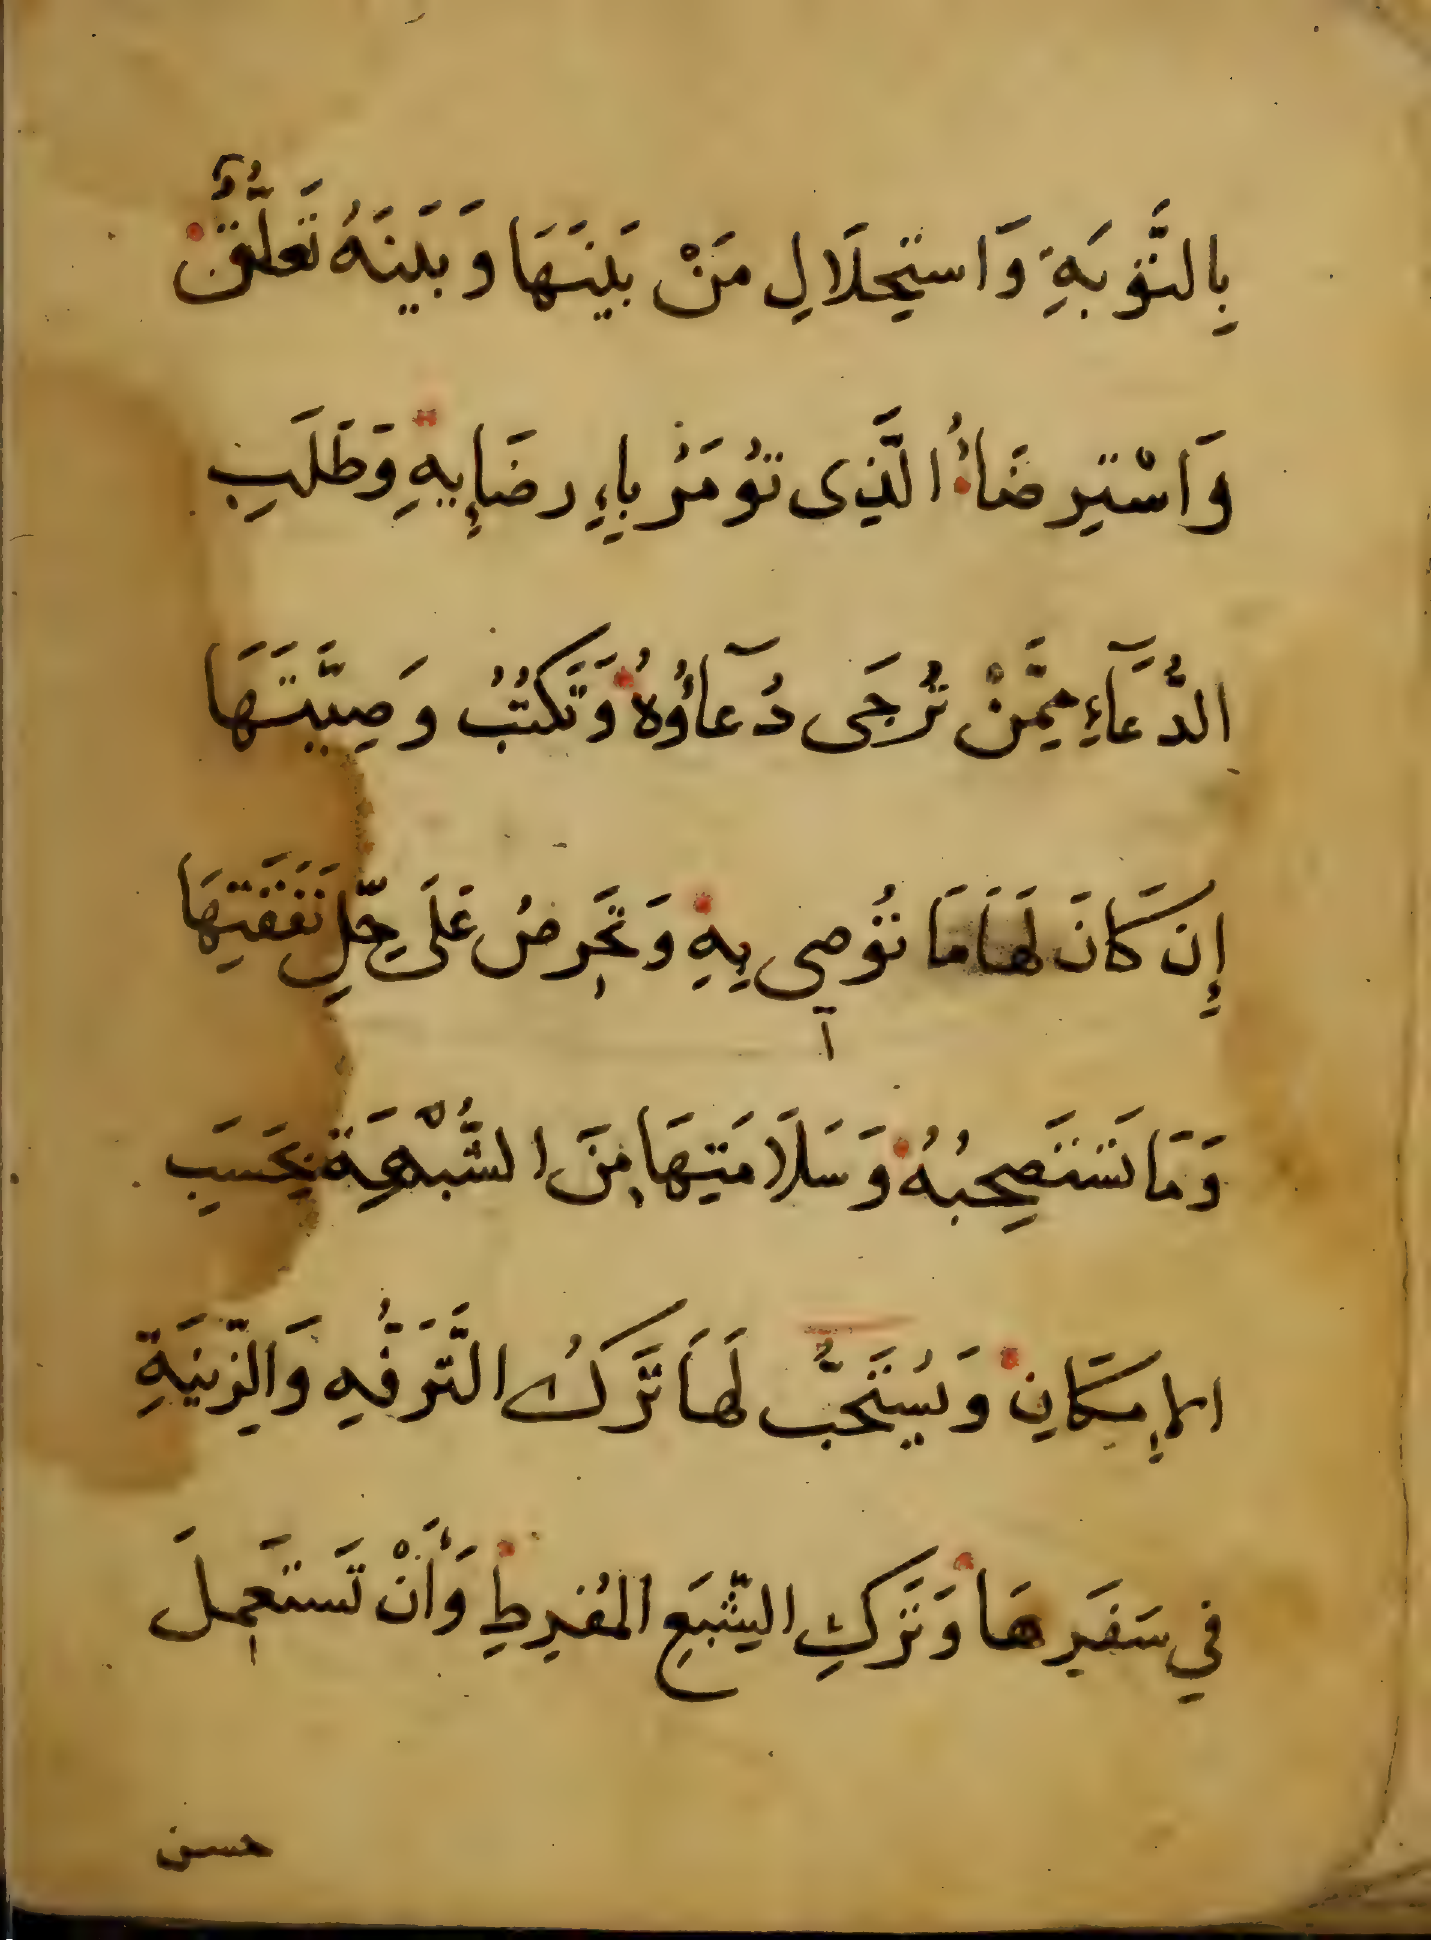 بِالتَّوبَةِ وَاستِحلَالِ مَنْ بَينَهَا وَبَينَهُ تَعَلُّقٌ
وَاسْتِرضَاءُ الَّذِى تُومَرُ بِاءِرضَايِهِ وَطَلَبِ
الدُّعَآءِ مِمَّنْ تُرجَى دُعَآؤُهُ وَتَكتُبُ وَصِيَّتَهَا
إِن كَانَ لَهَا مَا تُوصِى بِهِ وَتَحرِصُ عَلَى حِلِّ نَفَقَتِهَا
وَمَا تَستَصحِبُهُ وَسَلَامَتِهَا مِنَ الشُّبْهَةِ بِحَسَبِ
الإِمكَانِ وَيُستَحَبُّ لَهَا تَركُ التَّرَفُّهِ وَالزِّينَةِ
فِي سَفَرِهَا وَتَركِ الشِّبَعِ المُفرِطِ وَأَنْ تَستَعمِلَ
حسن